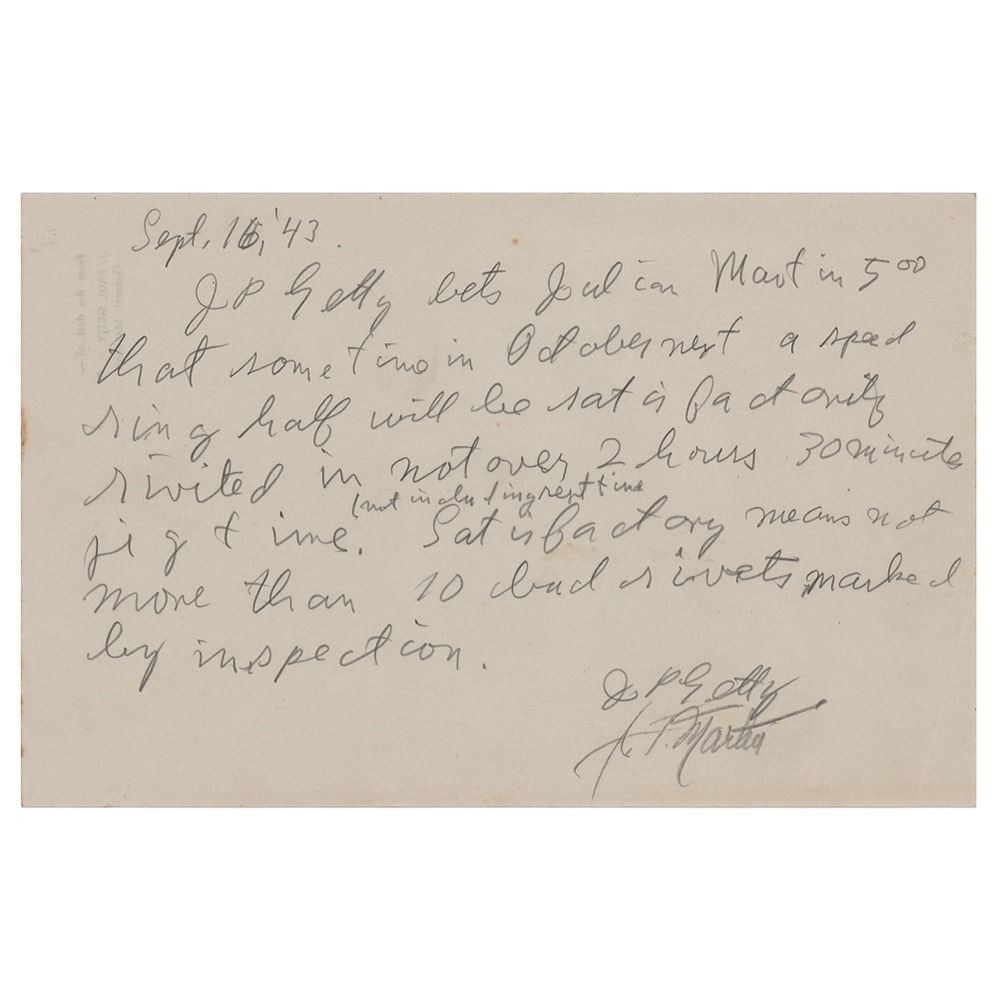 Sept. 16, '43.
J P Getty bets Julian Martin 5 00
that sometime in October next a speed
ring half will be satisfactorily
rivited in not over 2 hours 30 minutes
(not including rest time
jig time. Satisfactory means not
more than 10 bad rivets marked
by inspection.
J P Getty
J. T. Martin
From the desk of—
J. PAUL GETTY